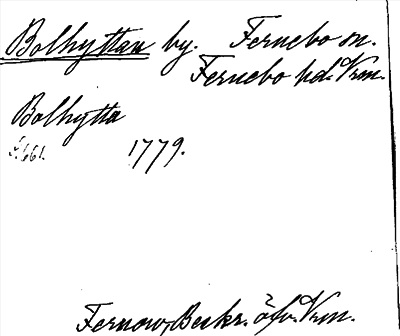 Bolhyttan by. Fernebo sn.
Fernebo hd. Vrm.
Bolhytta
s. 661. 1779.
Fernow, Beskr. öfv. Vrm.